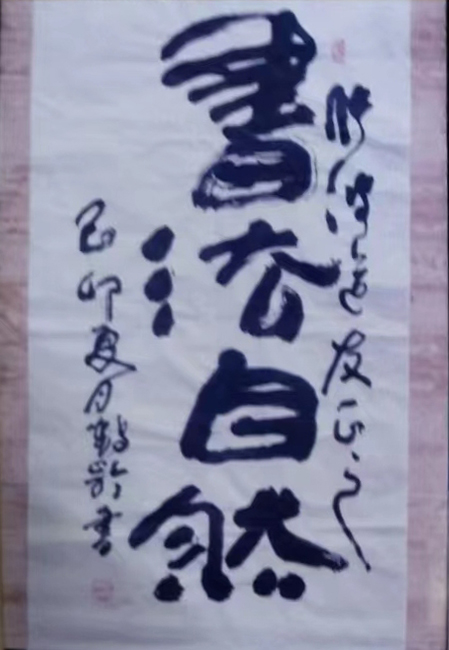 道友正之
書法自然
己卯夏月鶴齡書